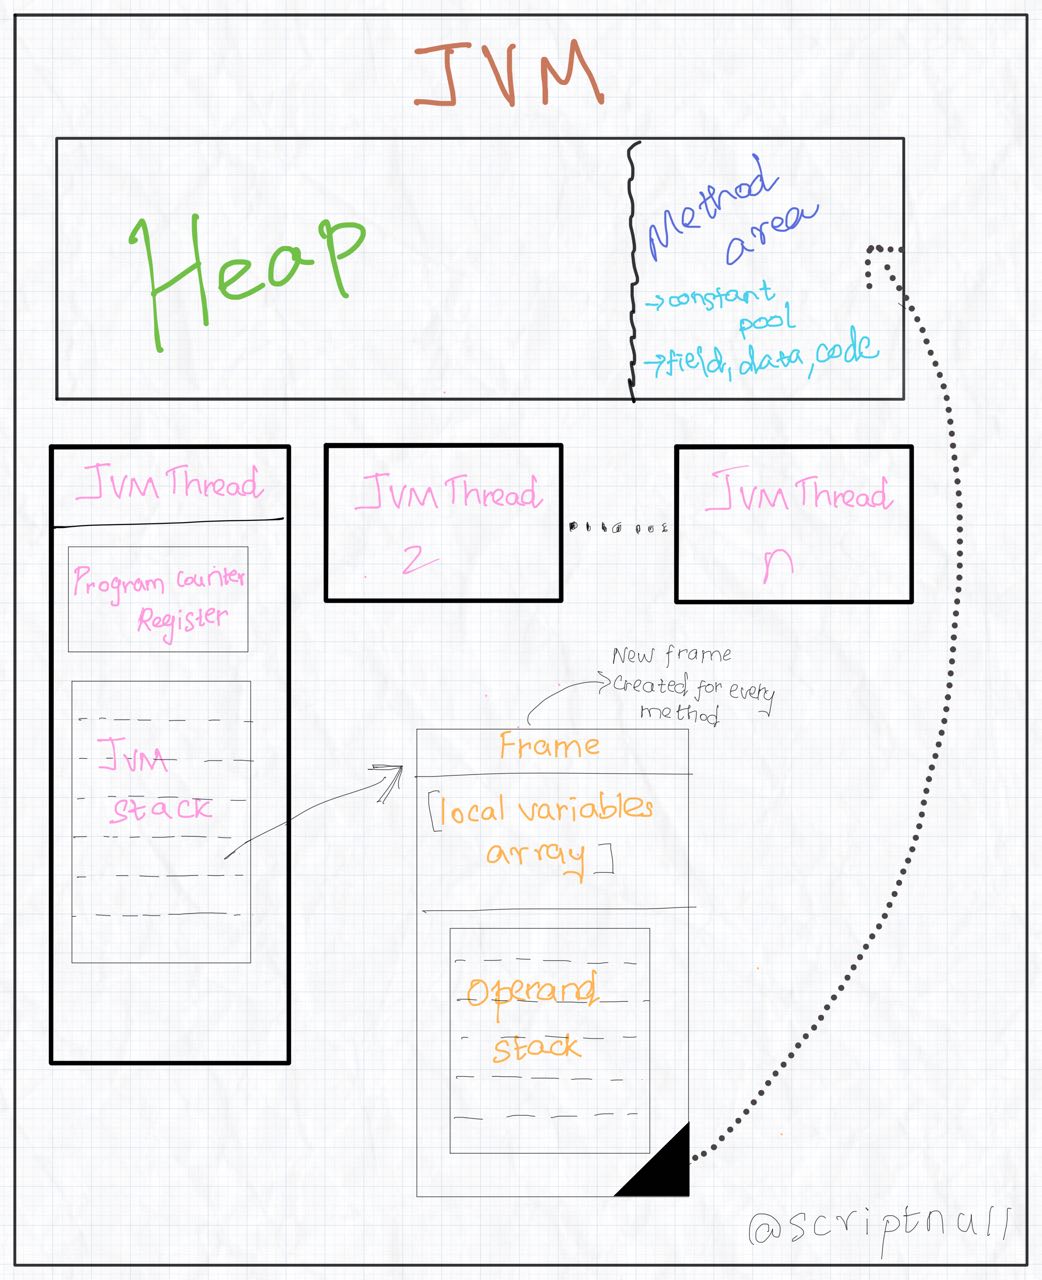 JVM
Heap
Method
area
→constant
pool
→field, data, code
JVM Thread
Program Counter
Register
JVM
stack
JVM Thread
2
JVM Thread
n
New frame
Created for every
method
Frame
[local variables
array]
Operand
stack
@scriptnull